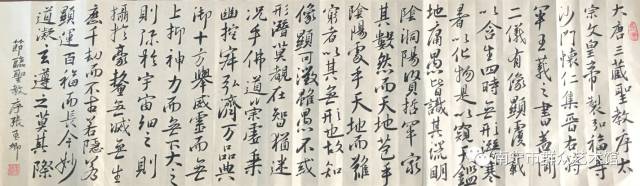 大唐三藏聖教序太
宗文皇帝製弘福寺
沙門懷仁集晉右將
軍王羲之書蓋聞
二儀有像顯覆載
以含生四時無形潛寒
暑以化物是以窺天鑑
地庸愚皆識其端明
陰洞陽賢哲罕窮
其數然而天地苞乎
陰陽處乎天地而難
窮者以其無形也故知
像顯可徵雖愚不惑
形潛莫覩在智猶迷
況乎佛道崇虛乘
幽控寂弘濟萬品典
御十方舉威靈而無
上抑神力而無下大之
則彌於宇宙細之則
攝於毫釐無滅無生
歷千劫而不古若隱若
顯運百福而長今妙
道凝玄遵之莫其際
節臨聖教序張玉
市群众艺术馆